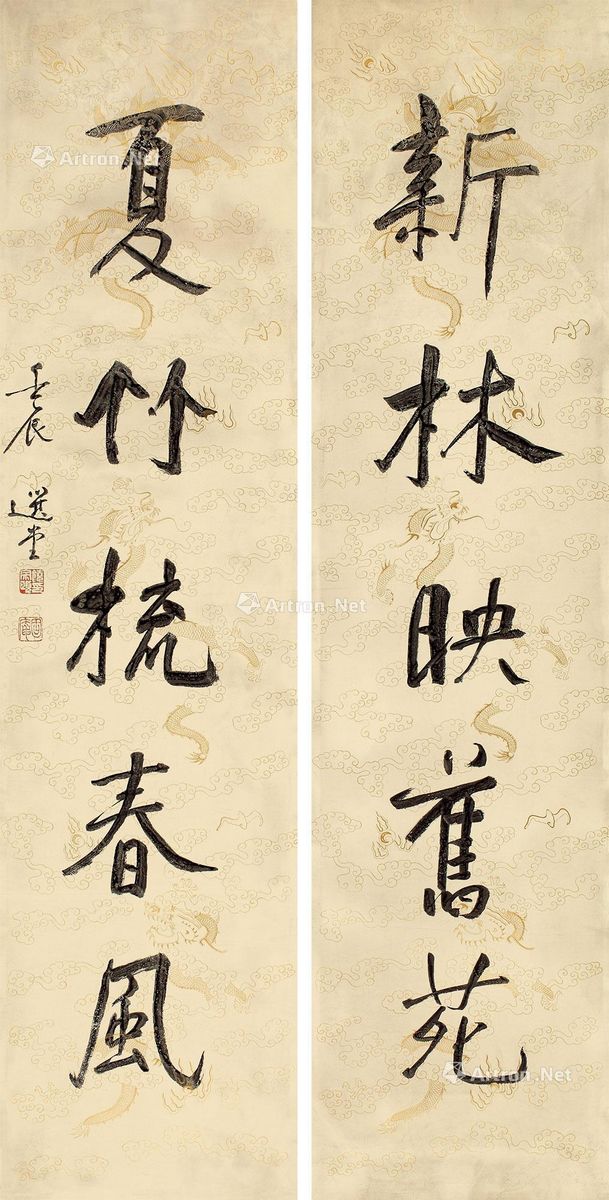 新林映舊苑
夏竹梳春風
壬辰 選堂
Artron.Net
Artron.Net
Artron.Net
Artron.Net